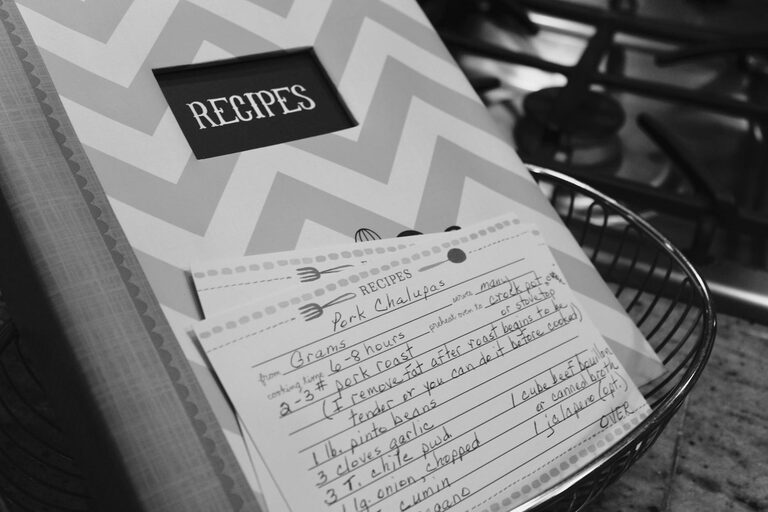 RECIPES
RECIPES
Pork Chalupas
from Grams serves many
cooking time 6-8 hours preheat oven to crock pot or
or stove top
2-3# pork roast
(I remove fat after roast begins to be
tender or you can do it before cooked)
1 lb. pinto beans
3 cloves garlic 1 cube beef bouillon
3 T. chile pwd. or canned broth
1 lg. onion, chopped 1 jalapeno (opt.)
cumin OVER